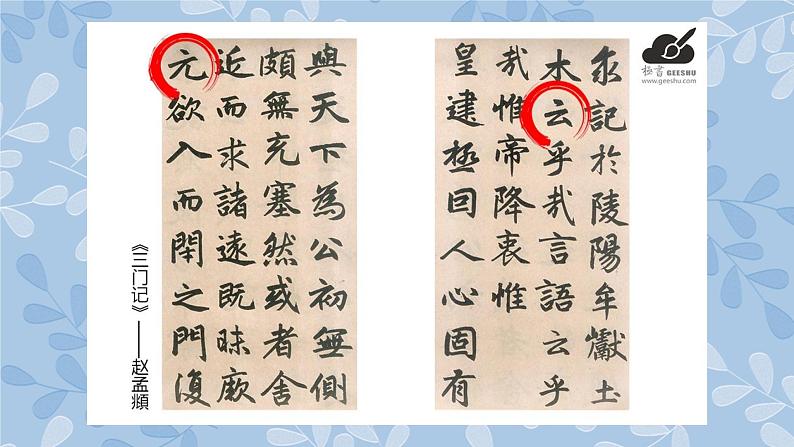 求記於陵陽牟巘土
木云乎哉言語云乎
哉惟帝降衷惟
皇建極囙人心固有
與天下為公初無側
頗無充塞然或者舍
近而求諸遠既昧厥
元欲入而閉之門復
《三门记》——赵孟頫
極書 GEESHU
www.geeshu.com